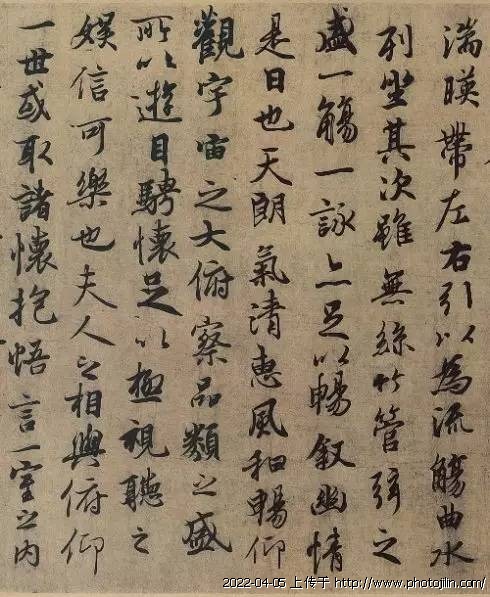 湍暎帶左右引以為流觴曲水
列坐其次雖無絲竹管弦之
盛一觴一詠亦足以暢敘幽情
是日也天朗氣清惠風和暢仰
觀宇宙之大俯察品類之盛
所以遊目騁懷足以極視聽之
娛信可樂也夫人之相與俯仰
一世或取諸懷抱悟言一室之內
2022-04-05 上传于 http://www.photojilin.com/